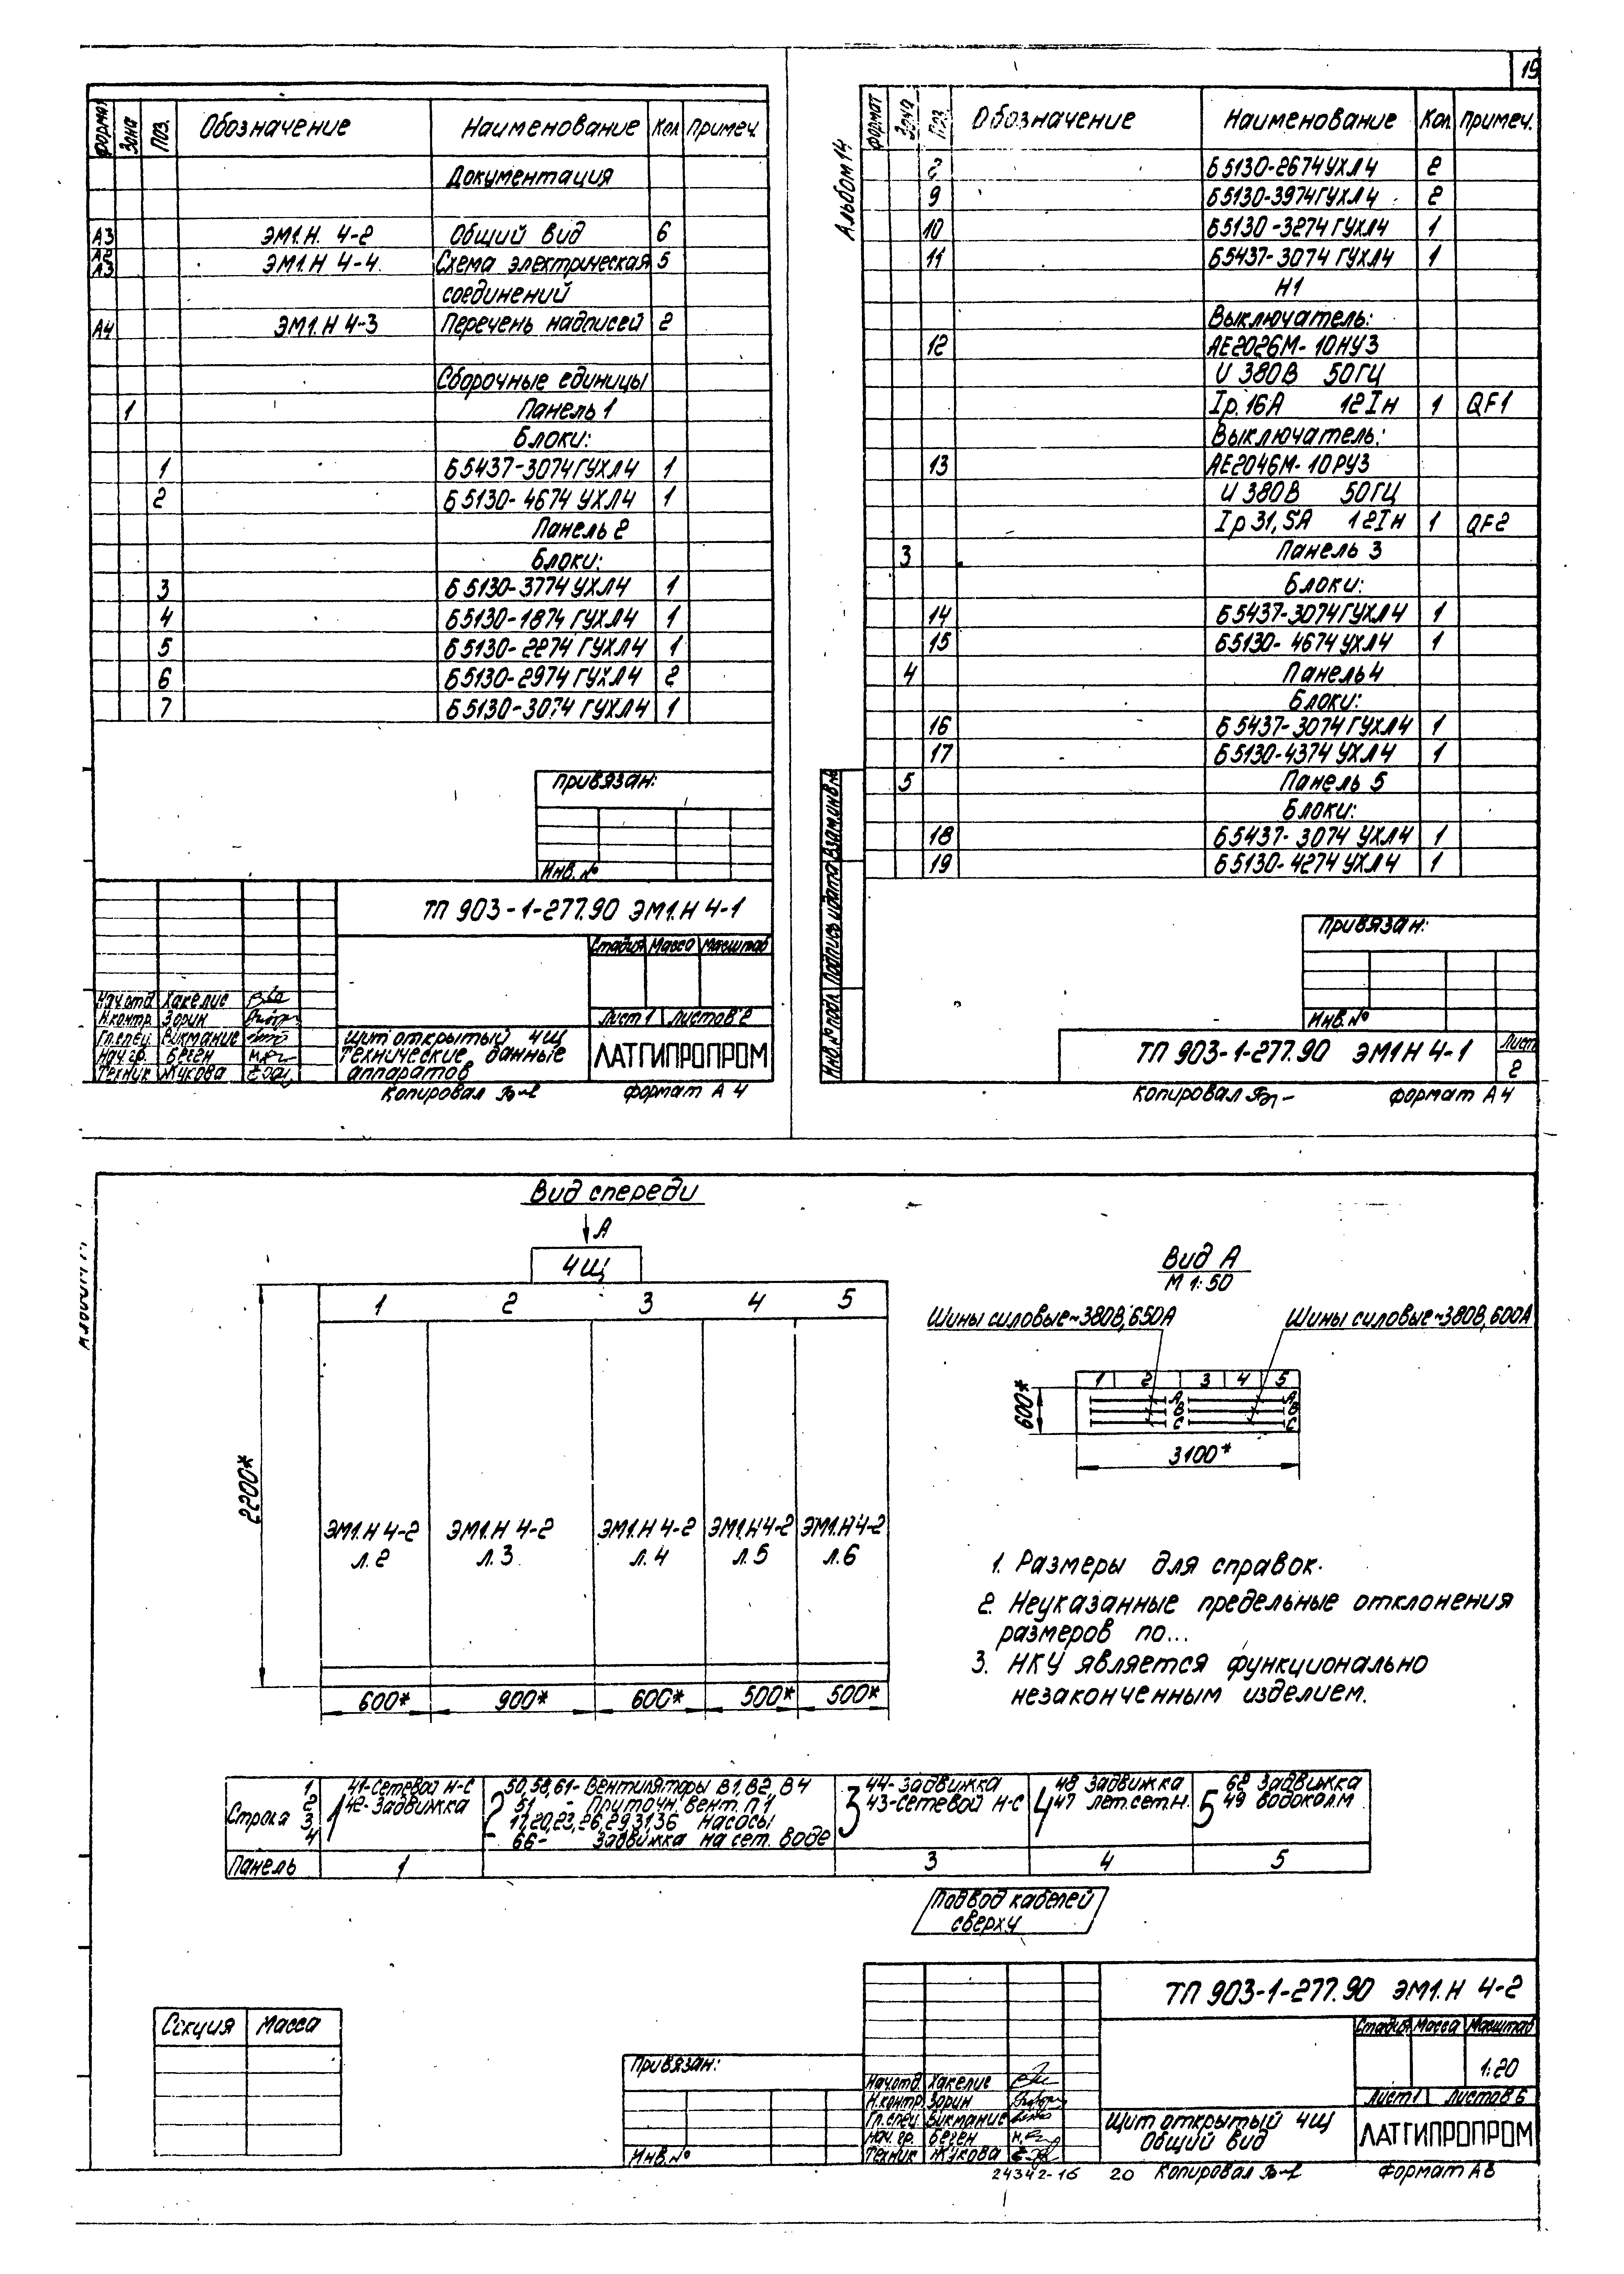 19
формат Зона Поз. Обозначение Наименование Кол Примеч.
Документация
А3 ЭМ1.Н. 4-2 Общий вид 6
А2 А3 ЭМ1.Н 4-4. Схема электрическая 5
соединений
А4 ЭМ1.Н 4-3 Перечень надписей 2
Сборочные единицы
1 Панель 1
Блоки:
1 Б5437-3074ГУХЛ4 1
2 Б5130-4674 УХЛ4 1
Панель 2
Блоки:
3 Б5130-3774 УХЛ4 1
4 Б5130-1874 ГУХЛ4 1
5 Б5130-2274 ГУХЛ4 1
6 Б5130-2974 ГУХЛ4 2
7 Б5130-3074 ГУХЛ4 1
Привязан:
Инв. №
ТП 903-1-277.90 ЭМ1.Н 4-1
Стадия Масса Масштаб
Лист 1 Листов 2
Нач.отд Хакелис
Н.контр. Зорин
Гл.спец. Викмание
Нач.гр. Беген
Техник Жукова
Щит открытый 4Щ
Технические данные
аппаратов
ЛАТГИПРОПРОМ
Копировал
формат А4
Альбом 14
формат Зона Поз. Обозначение Наименование Кол Примеч.
Б5130-2674УХЛ4 2
9 Б5130-3974ГУХЛ4 2
10 Б5130-3274ГУХЛ4 1
11 Б5437-3074 ГУХЛ4 1
Н1
Выключатель:
12 АЕ2026М-10НУ3
U 380В 50ГЦ
Iр.16А 12Iн 1 QF1
Выключатель:
13 АЕ2046М-10РУ3
U 380В 50ГЦ
Iр 31,5А 12Iн 1 QF2
3 Панель 3
Блоки:
14 Б5437-3074ГУХЛ4 1
15 Б5130-4674 УХЛ4 1
4 Панель 4
Блоки:
16 Б5437-3074ГУХЛ4 1
17 Б5130-4374 УХЛ4 1
5 Панель 5
Блоки:
18 Б5437-3074 УХЛ4 1
19 Б5130-4274 УХЛ4 1
Инв.№ подл. Подпись и дата Взам.инв.№
Привязан:
Инв.№
ТП 903-1-277.90 ЭМ1.Н 4-1
Лист
2
Копировал
формат А4
Вид спереди
А
4Щ
1 2 3 4 5
2200*
ЭМ1.Н 4-2 ЭМ1.Н 4-2 ЭМ1.Н 4-2 ЭМ1.Н 4-2 ЭМ1.Н 4-2
л.2 л.3 л.4 л.5 л.6
600* 900* 600* 500* 500*
Вид А
М 1:50
Шины силовые~380В,650А Шины силовые~380В,600А
1 2 3 4 5
А А
В В
С С
600*
3100*
1. Размеры для справок.
2. Неуказанные предельные отклонения
размеров по...
3. НКУ является функционально
незаконченным изделием.
Строка 1 2 3 4
1 41-Сетевой Н-С
42-Задвижка
2 50,58,61-Вентиляторы В1,В2,В4
51 - Приточн.вент.П1
17,20,23,26,29,31,36 Насосы
66- Задвижка на сет. воде
3 44-Задвижка
43-Сетевой Н-С
4 48 Задвижка
47 лет.сет.Н.
5 62 Задвижка
49 водокол.м
Панель 1 3 4 5
Подвод кабелей
сверху
Секция Масса
Привязан:
Инв.№
ТП 903-1-277.90 ЭМ1.Н 4-2
Стадия Масса Масштаб
1:20
Лист 1 Листов 6
Нач.отд. Хакелис
Н.контр. Зорин
Гл.спец. Викмание
Нач.гр. Беген
Техник Жукова
Щит открытый 4Щ
Общий вид
ЛАТГИПРОПРОМ
24342-16 20 Копировал
Формат А3